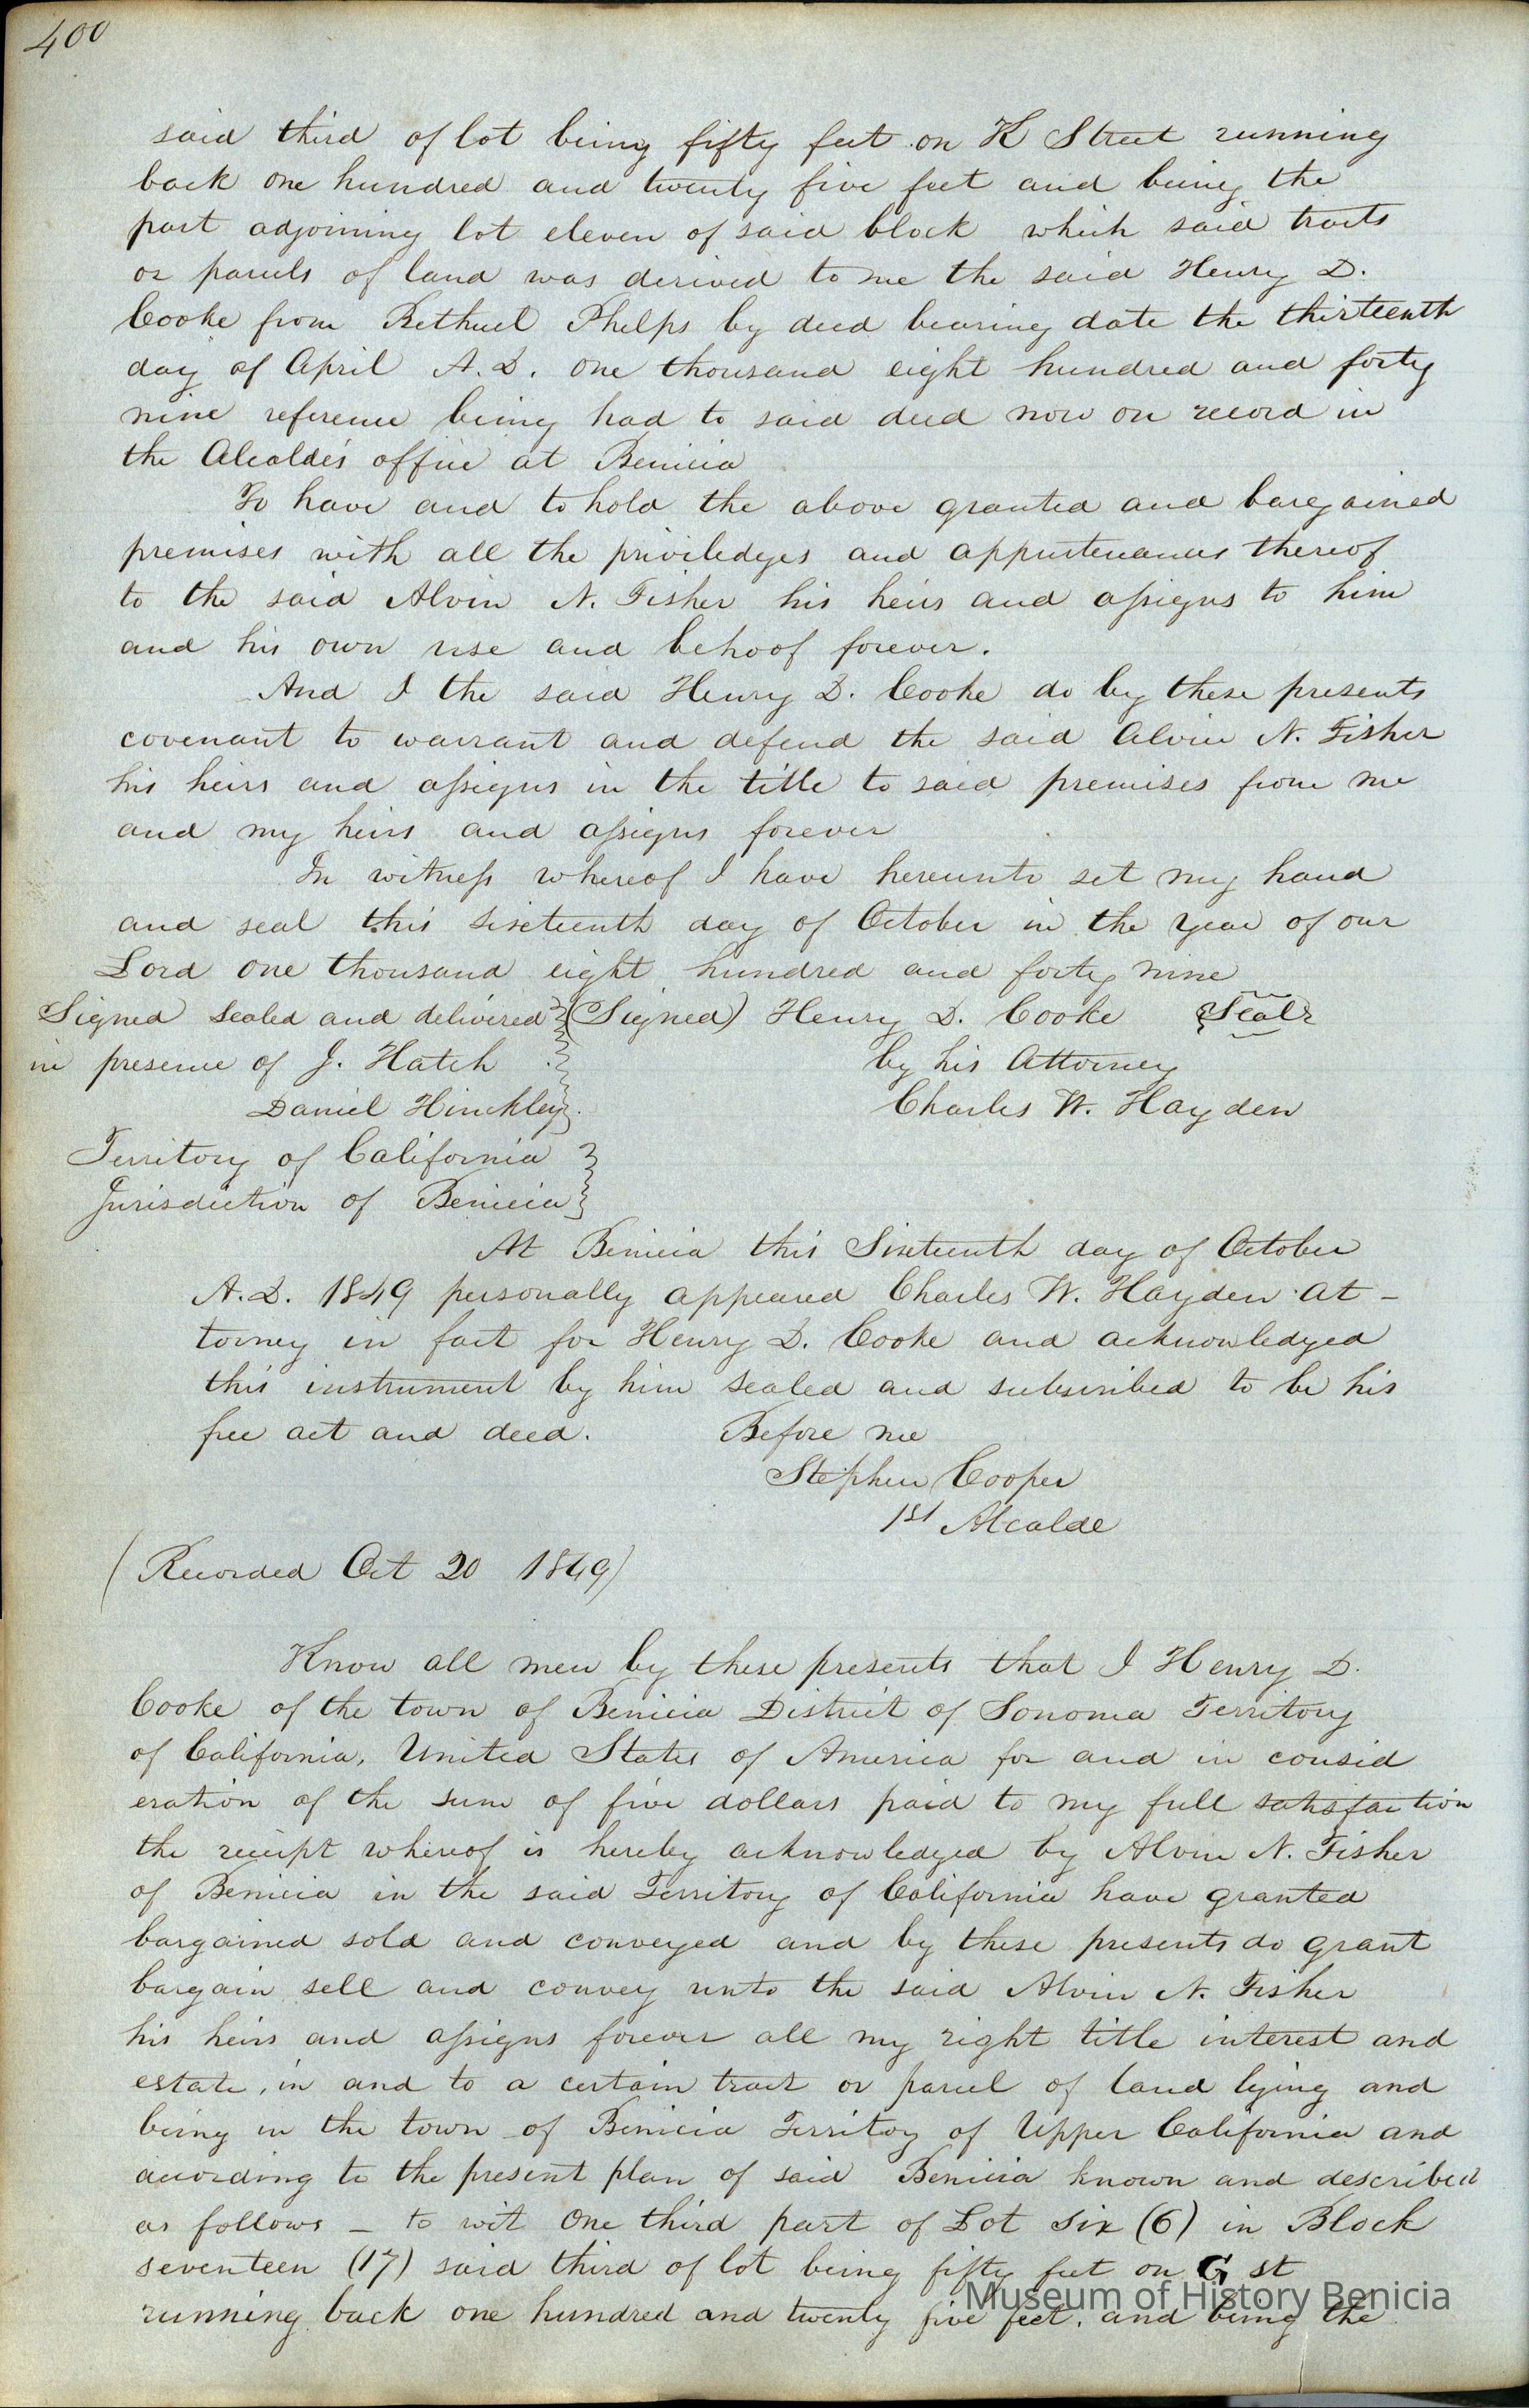 400
said third of lot being fifty feet on K Street running
back one hundred and twenty five feet and being the
part adjoining lot eleven of said block which said tracts
or parcels of land was derived to me the said Henry D.
Cooke from Bethuel Phelps by deed bearing date the thirteenth
day of April A.D. one thousand eight hundred and forty
nine reference being had to said deed now on record in
the Alcalde's office at Benicia
To have and to hold the above granted and bargained
premises with all the priviledges and appurtenances thereof
to the said Alvin N. Fisher his heirs and assigns to him
and his own use and behoof forever.
And I the said Henry D. Cooke do by these presents
covenant to warrant and defend the said Alvin N. Fisher
his heirs and assigns in the title to said premises from me
and my heirs and assigns forever
In witness whereof I have hereunto set my hand
and seal this sixteenth day of October in the year of our
Lord one thousand eight hundred and forty nine
Signed sealed and delivered (Signed) Henry D. Cooke Seal
in presence of J. Hatch by his Attorney
Daniel Hinckley. Charles W. Hayden
Territory of California
Jurisdiction of Benicia
At Benicia this Sixteenth day of October
A.D. 1849 personally appeared Charles W. Hayden At-
torney in fact for Henry D. Cooke and acknowledged
this instrument by him sealed and subscribed to be his
free act and deed. Before me
Stephen Cooper
1st Alcalde
(Recorded Oct 20 1849)
Know all men by these presents that I Henry D.
Cooke of the town of Benicia District of Sonoma Territory
of California, United States of America for and in consid
eration of the sum of five dollars paid to my full satisfaction
the receipt whereof is hereby acknowledged by Alvin N. Fisher
of Benicia in the said Territory of California have granted
bargained sold and conveyed and by these presents do grant
bargain sell and convey unto the said Alvin N. Fisher
his heirs and assigns forever all my right title interest and
estate, in and to a certain tract or parcel of land lying and
being in the town of Benicia Territoy of Upper California and
according to the present plan of said Benicia known and described
as follows - to wit One third part of Lot six (6) in Block
seventeen (17) said third of lot being fifty feet on G st
running back one hundred and twenty five feet. and being the
Museum of History Benicia